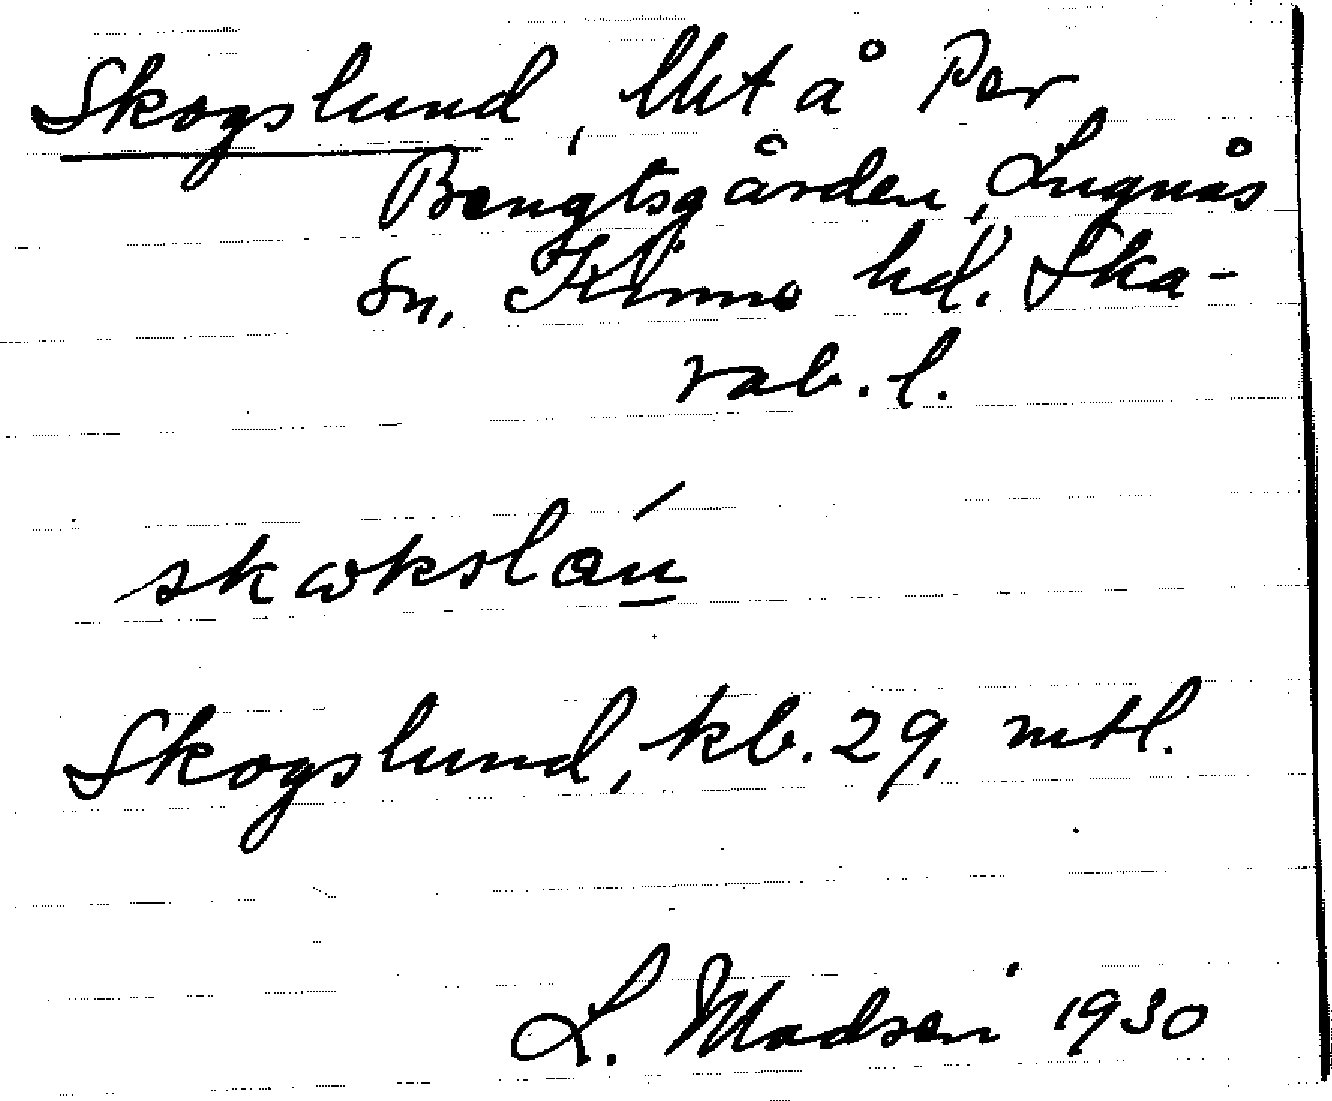 Skogslund, lht å Per
Bengtsgården, Lugnås
sn, Kinne hd. Ska-
rab. l.
Skogslund, kb. 29, mtl.
L. Madsen 1930